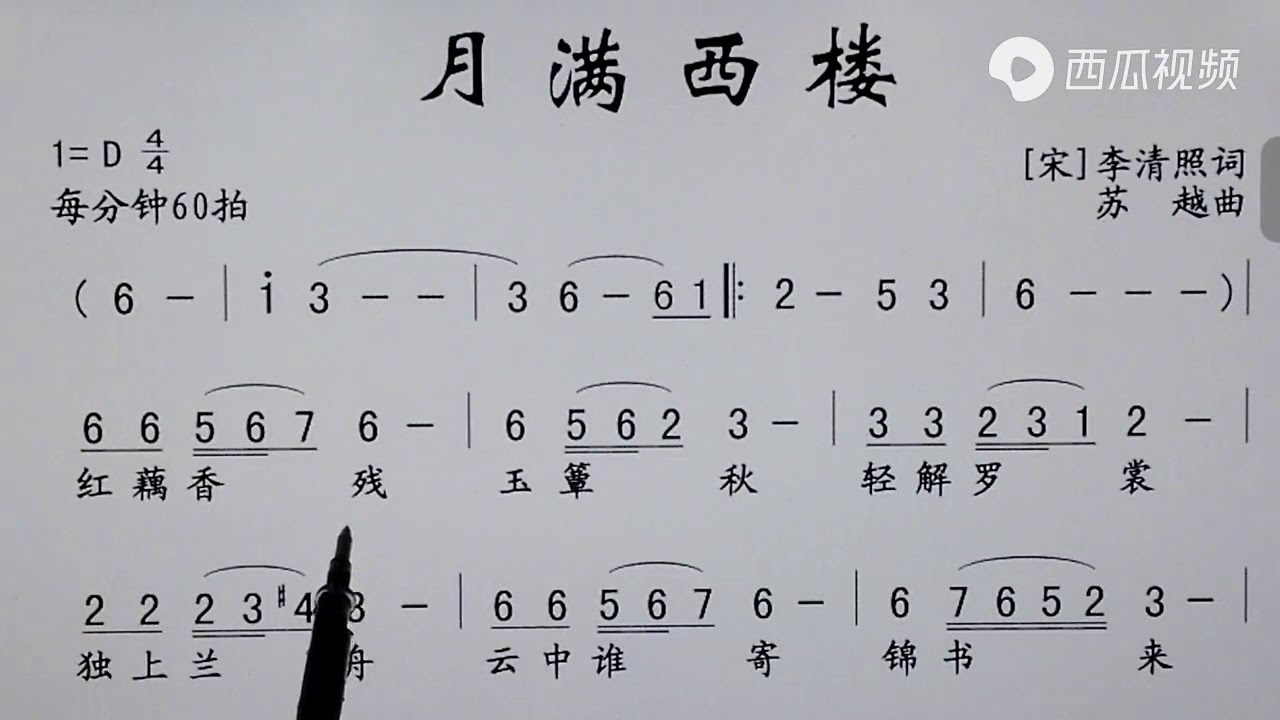 月满西楼
西瓜视频
1= D 4/4
[宋]李清照词
每分钟60拍
苏 越曲
( 6 － | i 3 － － | 3 6 － 6 1 ‖: 2 － 5 3 | 6 － － － ) |
6 6 5 6 7 6 － | 6 5 6 2 3 － | 3 3 2 3 1 2 － |
红藕香 残 玉簟 秋 轻解罗 裳
2 2 2 3 #4 3 － | 6 6 5 6 7 6 － | 6 7 6 5 2 3 － |
独上兰 舟 云中谁 寄 锦书 来